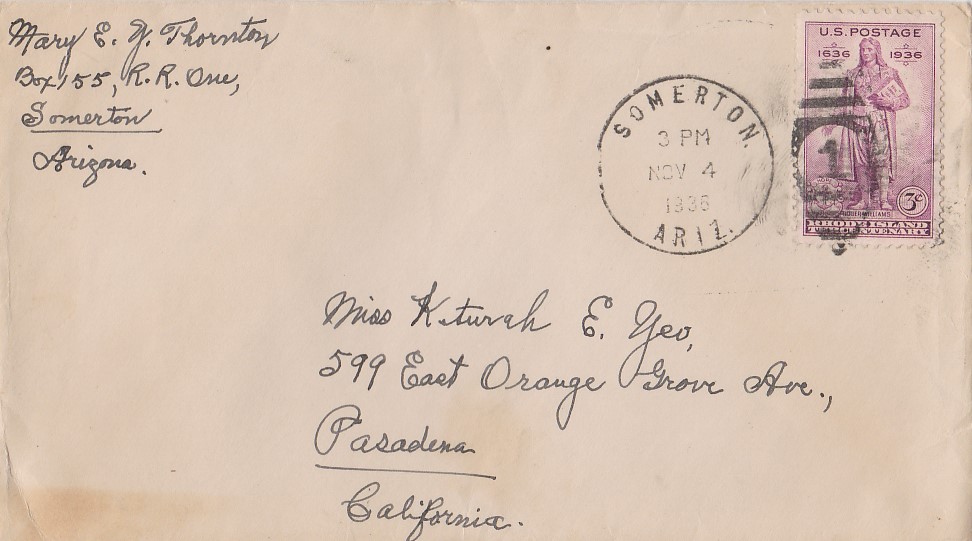 Mary E. Y. Thornton
Box 155, R. R. One,
Somerton
Arizona.
SOMERTON.
3 PM
NOV 4
1936
ARIZ.
U.S. POSTAGE
1636 1936
1
3¢
ROGER WILLIAMS
RHODE ISLAND
TERCENTENARY
Miss Keturah E. Yeo,
599 East Orange Grove Ave.,
Pasadena
California.